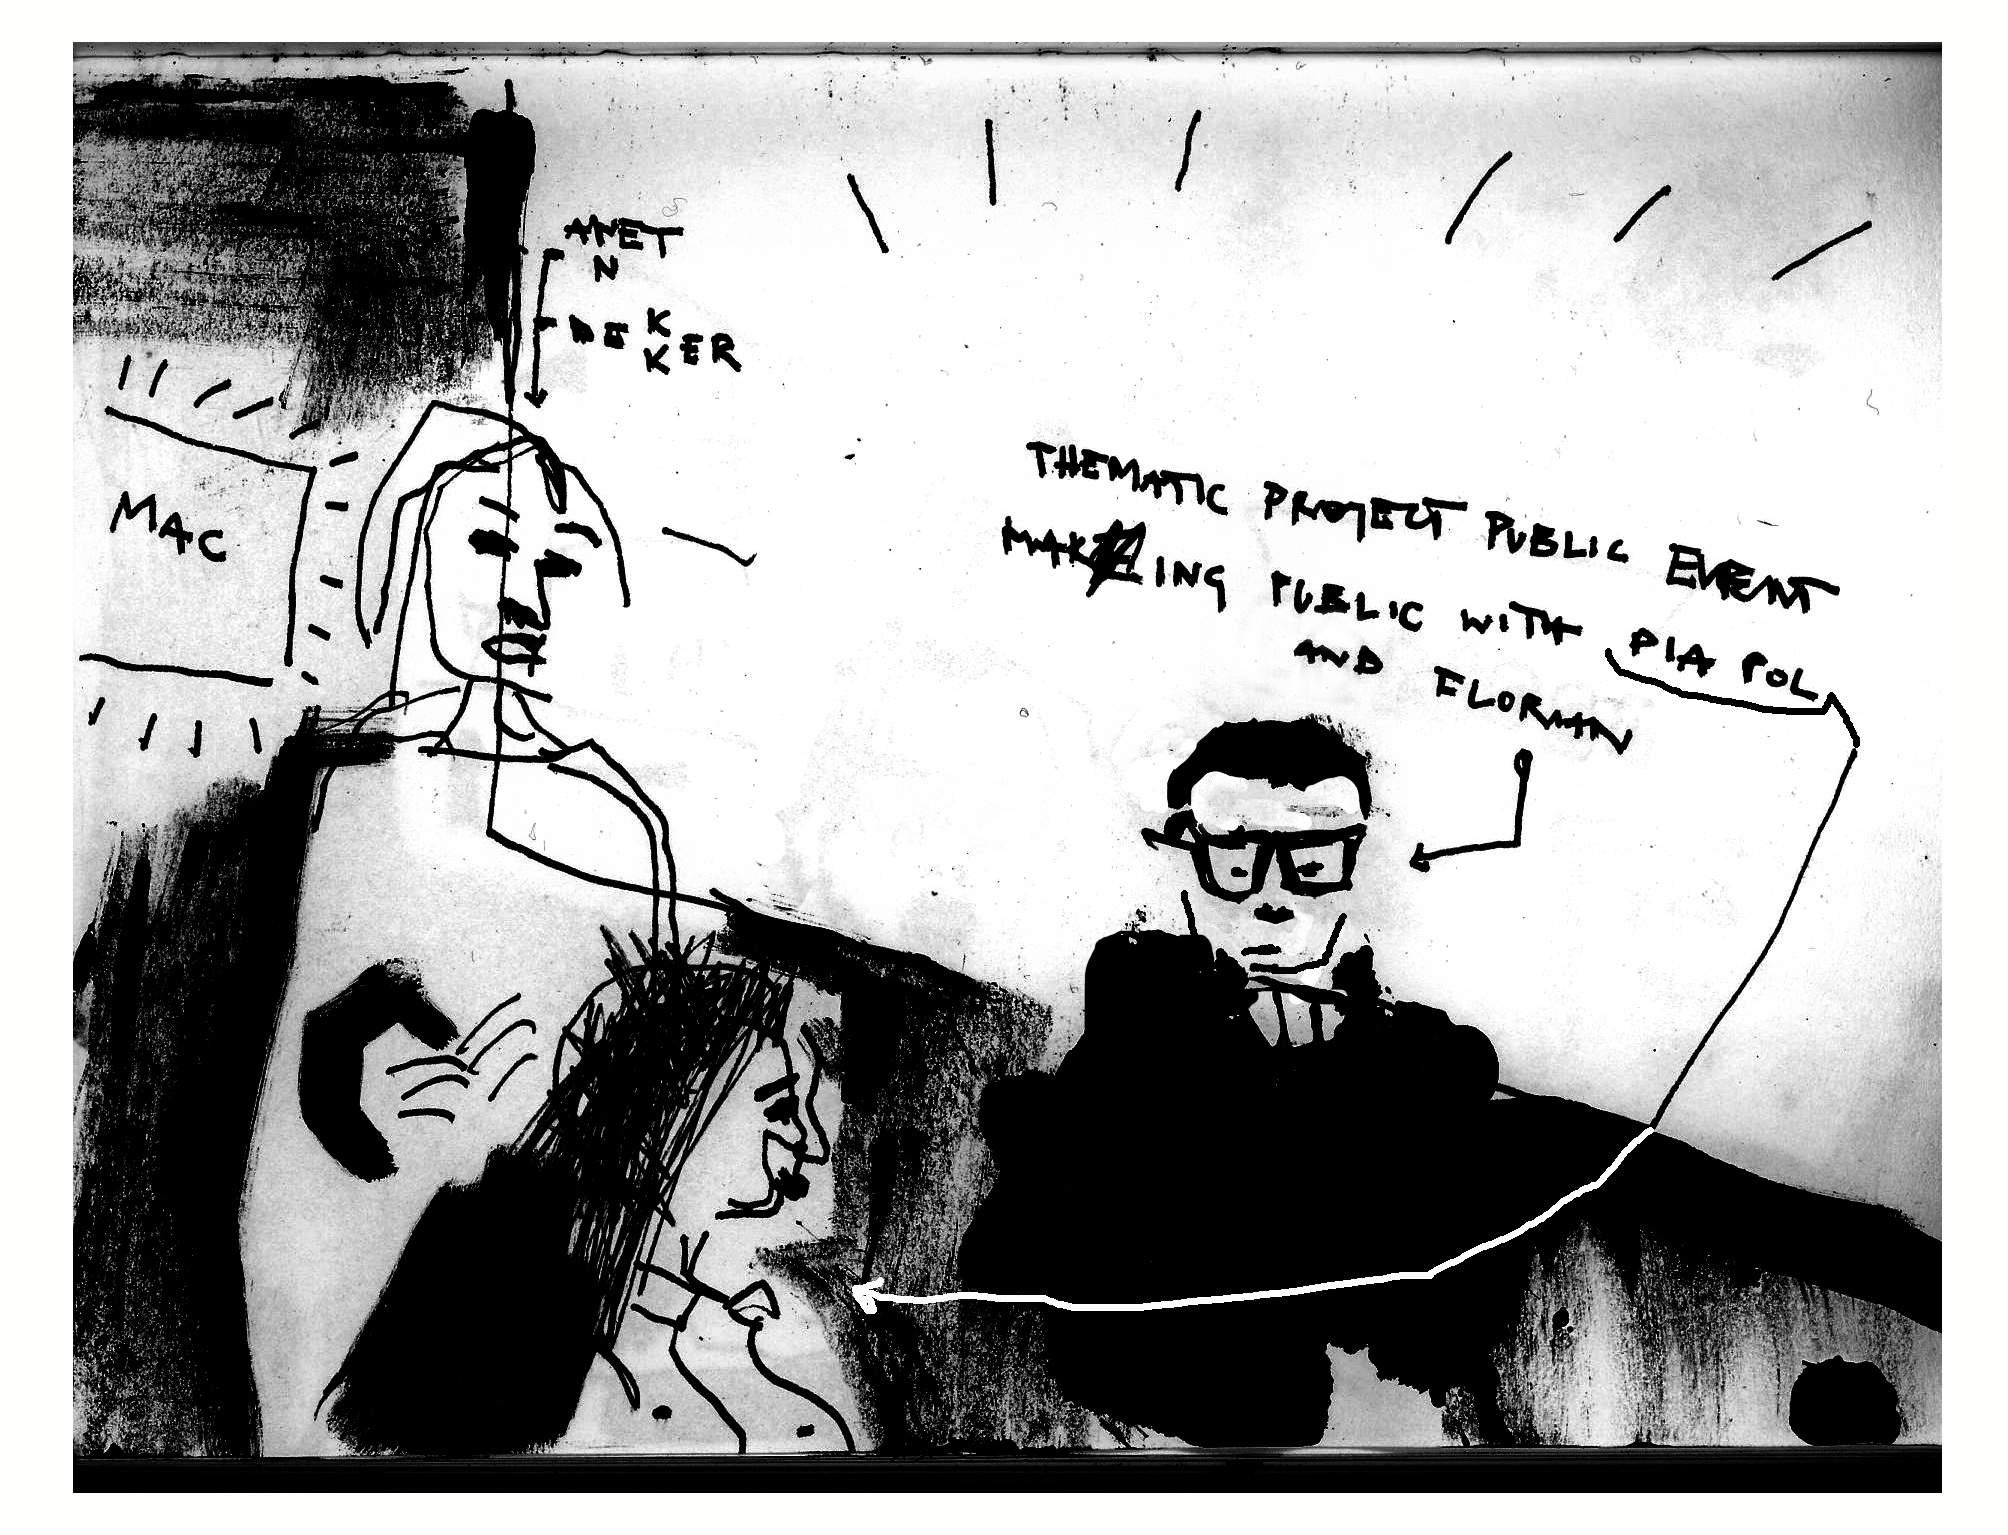 ANET
N
DE K
KER
MAC
THEMATIC PROJECT PUBLIC EVENT
MAKING PUBLIC WITH PIA POL
AND FLORMAN